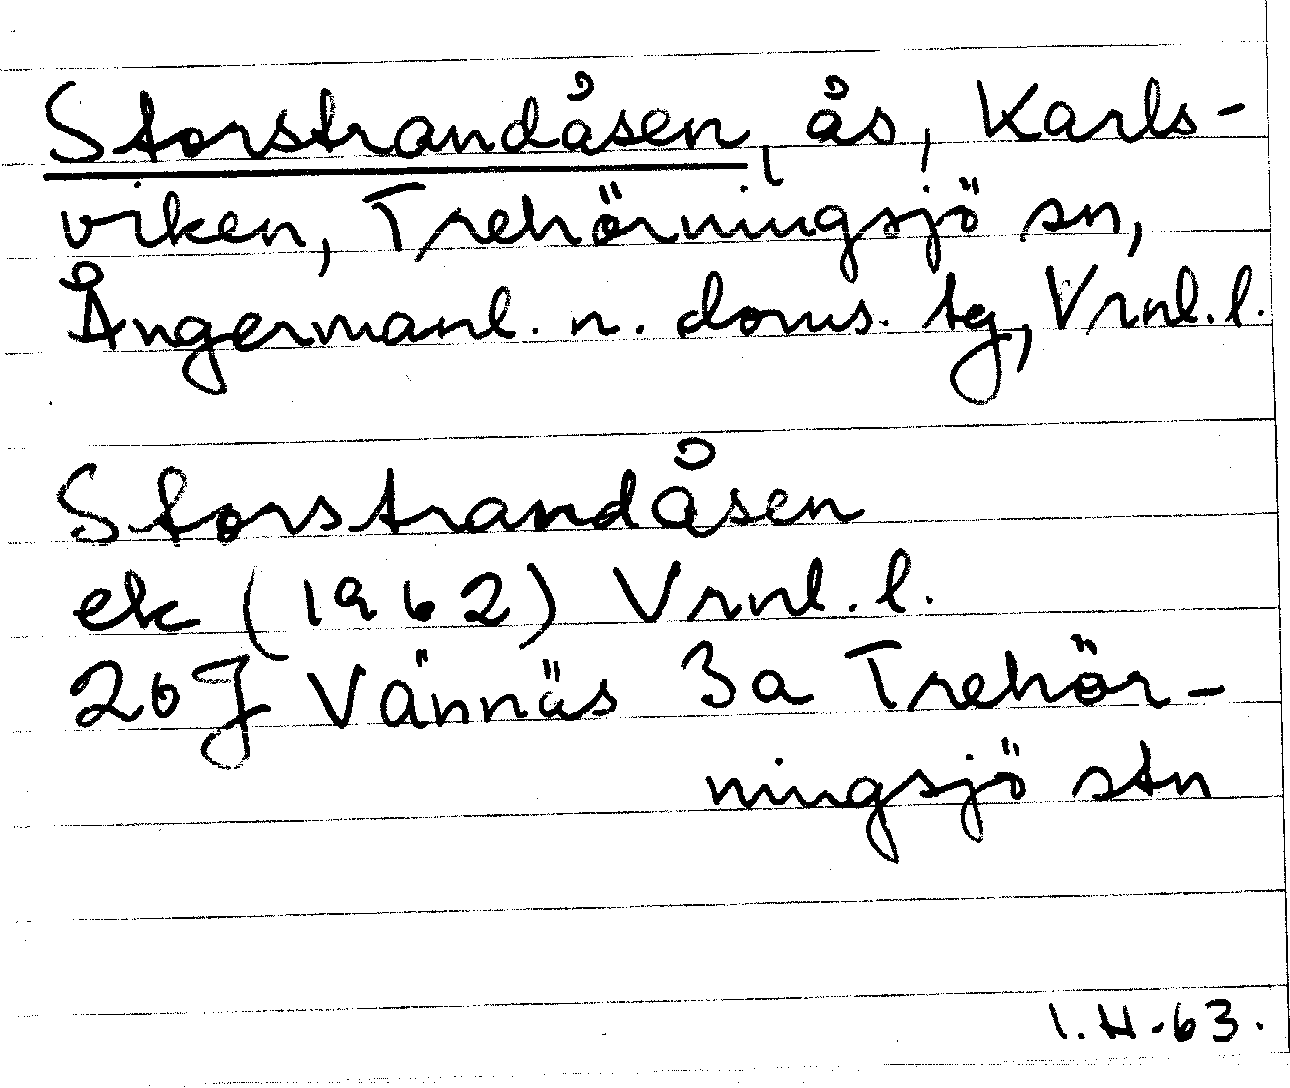 Storstrandåsen, ås, Karls-
viken, Trehörningsjö sn,
Ångermanl. n. doms. tg, Vrnl. l.
Storstrandåsen
ek (1962) Vrnl. l.
20J Vännäs 3a Trehör-
ningsjö stn
I.H.63.